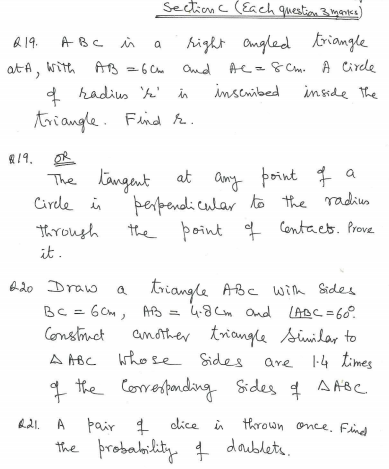 Section C (Each question 3 marks)
Q19. ABC is a right angled triangle
at A, with AB = 6cm and AC = 8cm. A circle
of radius 'r' is inscribed inside the
triangle. Find r.
Q19. OR
The tangent at any point of a
circle is perpendicular to the radius
through the point of contact. Prove
it.
Q20 Draw a triangle ABC with sides
BC = 6cm, AB = 4.8cm and ∠ABC = 60°.
Construct another triangle similar to
△ABC whose sides are 1.4 times
of the corresponding sides of △ABC
Q21. A pair of dice is thrown once. Find
the probability of doublets.